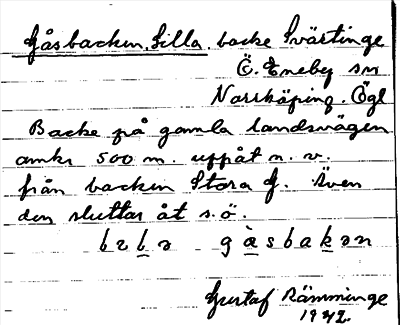 Gåsbacken, Lilla, backe Svärtinge
Ö. Eneby sn
Norrköping. Ögl
Backe på gamla landsvägen
omkr 500 m. uppåt n. v.
från backen Stora G. Även
den sluttar åt s.ö.
gåsbakən
Gustaf Rämminge
1942.